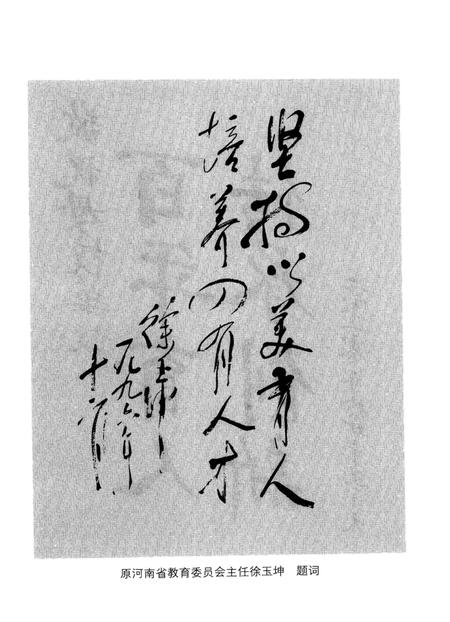 坚持以美育人
培养四有人才
徐玉坤
一九九六年
十一月
原河南省教育委员会主任徐玉坤　题词